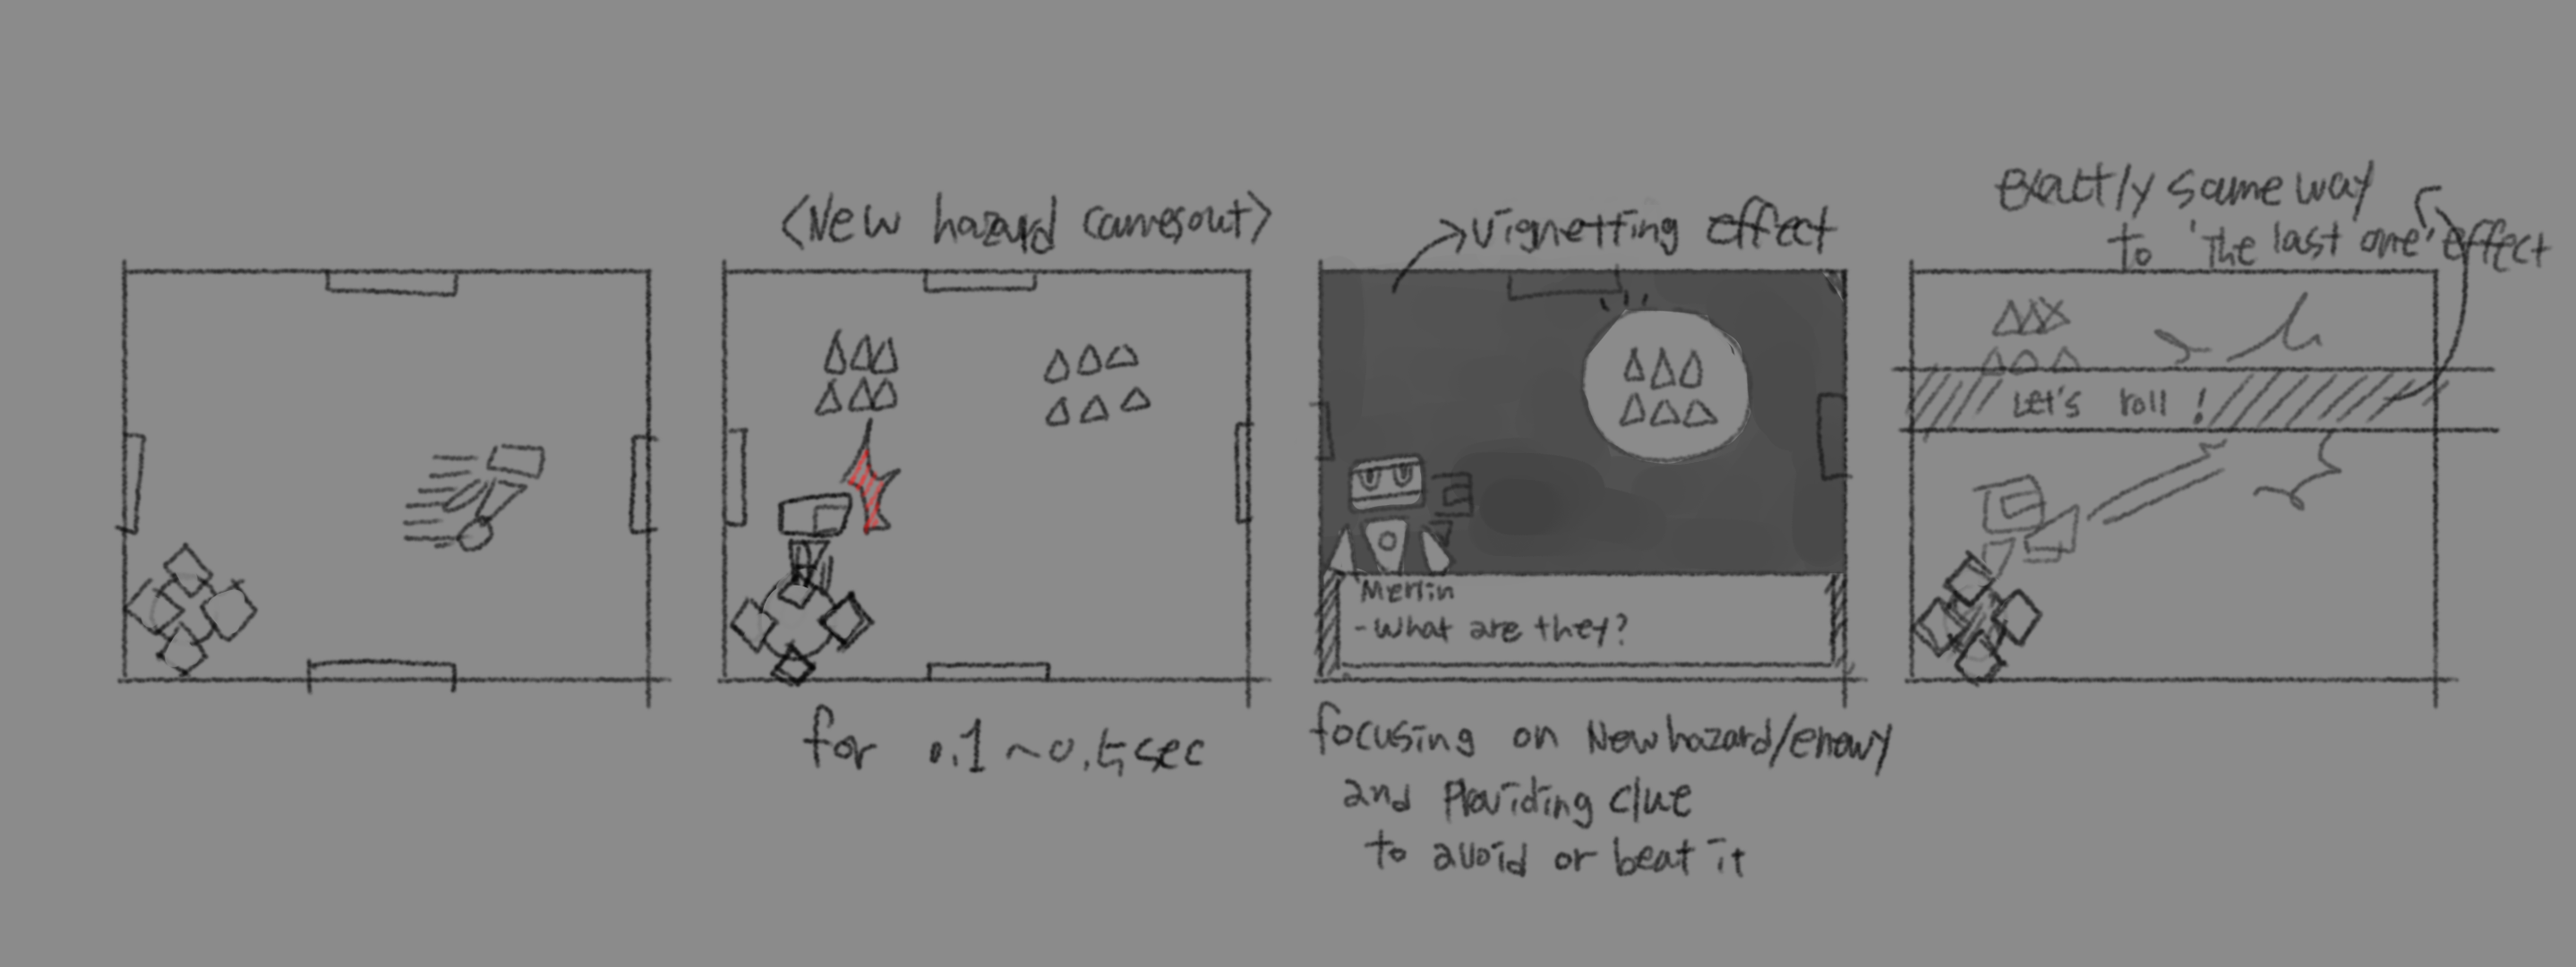 <New hazard comes out>
for 0.1~0.5sec
vignetting effect
Merlin
-What are they?
focusing on New hazard/enemy
and Providing clue
to avoid or beat it
exactly same way
to 'The last one' effect
Let's roll!